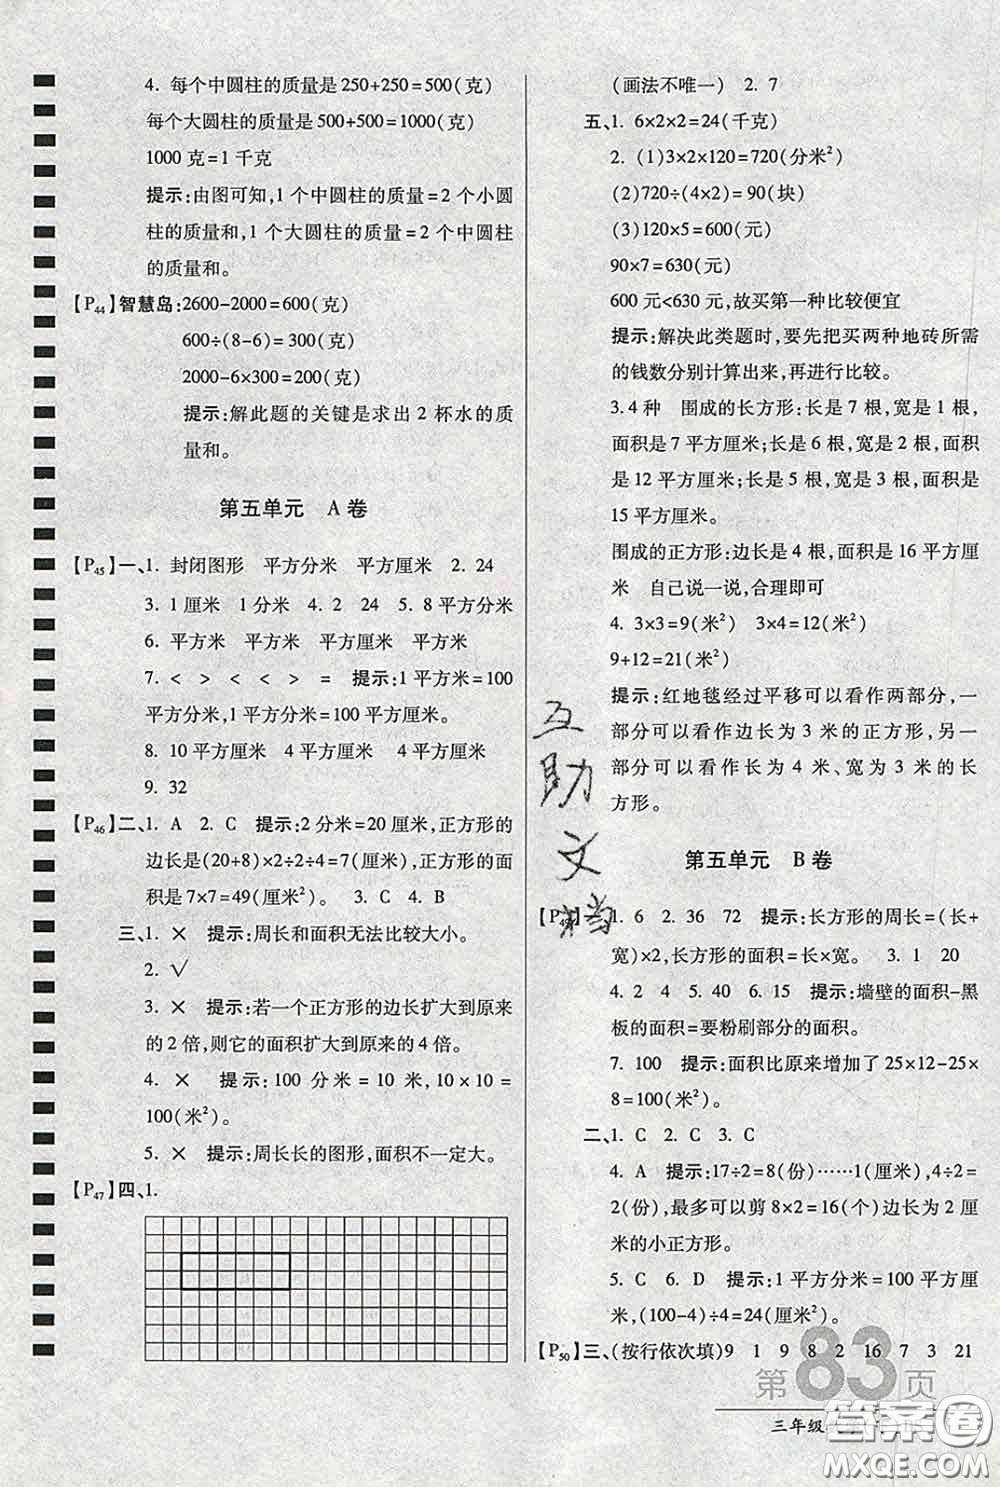 4. 每个中圆柱的质量是250+250=500(克)
每个大圆柱的质量是500+500=1000(克)
1000克=1千克
提示:由图可知,1个中圆柱的质量=2个小圆
柱的质量和,1个大圆柱的质量=2个中圆柱
的质量和。
【P44】智慧岛:2600-2000=600(克)
600÷(8-6)=300(克)
2000-6×300=200(克)
提示:解此题的关键是求出2杯水的质
量和。
第五单元 A卷
【P45】一、1. 封闭图形 平方分米 平方厘米 2. 24
3. 1厘米 1分米 4. 2 24 5. 8平方分米
6. 平方米 平方米 平方厘米 平方米
7. < > < < > = 提示:1平方米=100
平方分米,1平方分米=100平方厘米。
8. 10平方厘米 4平方厘米 4平方厘米
9. 32
【P46】二、1. A 2. C 提示:2分米=20厘米,正方形的
边长是(20+8)×2÷2÷4=7(厘米),正方形的面
积是7×7=49(厘米²) 3. C 4. B
三、1. × 提示:周长和面积无法比较大小。
2. √
3. × 提示:若一个正方形的边长扩大到原来
的2倍,则它的面积扩大到原来的4倍。
4. × 提示:100分米=10米,10×10=
100(米²)。
5. × 提示:周长长的图形,面积不一定大。
【P47】四、1.
(画法不唯一) 2. 7
五、1. 6×2×2=24(千克)
2. (1)3×2×120=720(分米²)
(2)720÷(4×2)=90(块)
(3)120×5=600(元)
90×7=630(元)
600元<630元,故买第一种比较便宜
提示:解决此类题时,要先把买两种地砖所需
的钱数分别计算出来,再进行比较。
3.4种 围成的长方形:长是7根,宽是1根,
面积是7平方厘米;长是6根,宽是2根,面积
是12平方厘米;长是5根,宽是3根,面积是
15平方厘米。
围成的正方形:边长是4根,面积是16平方厘
米 自己说一说,合理即可
4. 3×3=9(米²) 3×4=12(米²)
9+12=21(米²)
提示:红地毯经过平移可以看作两部分,一
部分可以看作边长为3米的正方形,另一
部分可以看作长为4米、宽为3米的长
方形。
互助文档
第五单元 B卷
1. 6 2. 36 72 提示:长方形的周长=(长+
宽)×2,长方形的面积=长×宽。 3. 1 20
4. 2 4 5. 40 6. 15 提示:墙壁的面积-黑
板的面积=要粉刷部分的面积。
7. 100 提示:面积比原来增加了25×12-25×
8=100(米²)。
二、1. C 2. C 3. C
4. A 提示:17÷2=8(份)……1(厘米),4÷2=
2(份),最多可以剪8×2=16(个)边长为2厘
米的小正方形。
5. C 6. D 提示:1平方分米=100平方厘
米,(100-4)÷4=24(厘米²)。
【P50】三、(按行依次填)9 1 9 8 2 16 7 3 21
第83页
三年级
答案圈
MXQE.COM